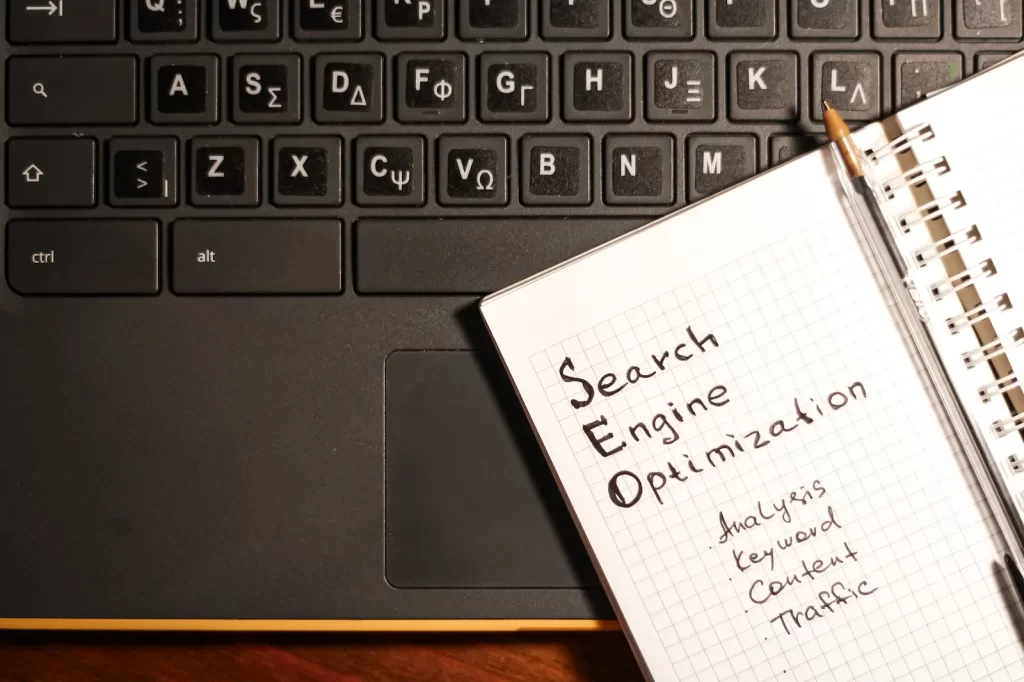 Q :
W ς
E €
R Ρ
A
S Σ
D Δ
F Φ
G Γ
H
J Ξ
K
L Λ
<
>
Z
X
C Ψ
V Ω
B
N
M
ctrl
alt
Search
Engine
Optimization
. Analysis
. Keyword
. Content
. Traffic